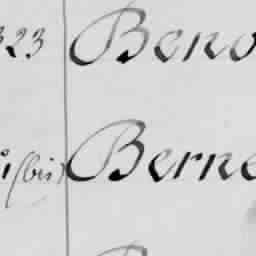 323 Beno
(bis) Berne